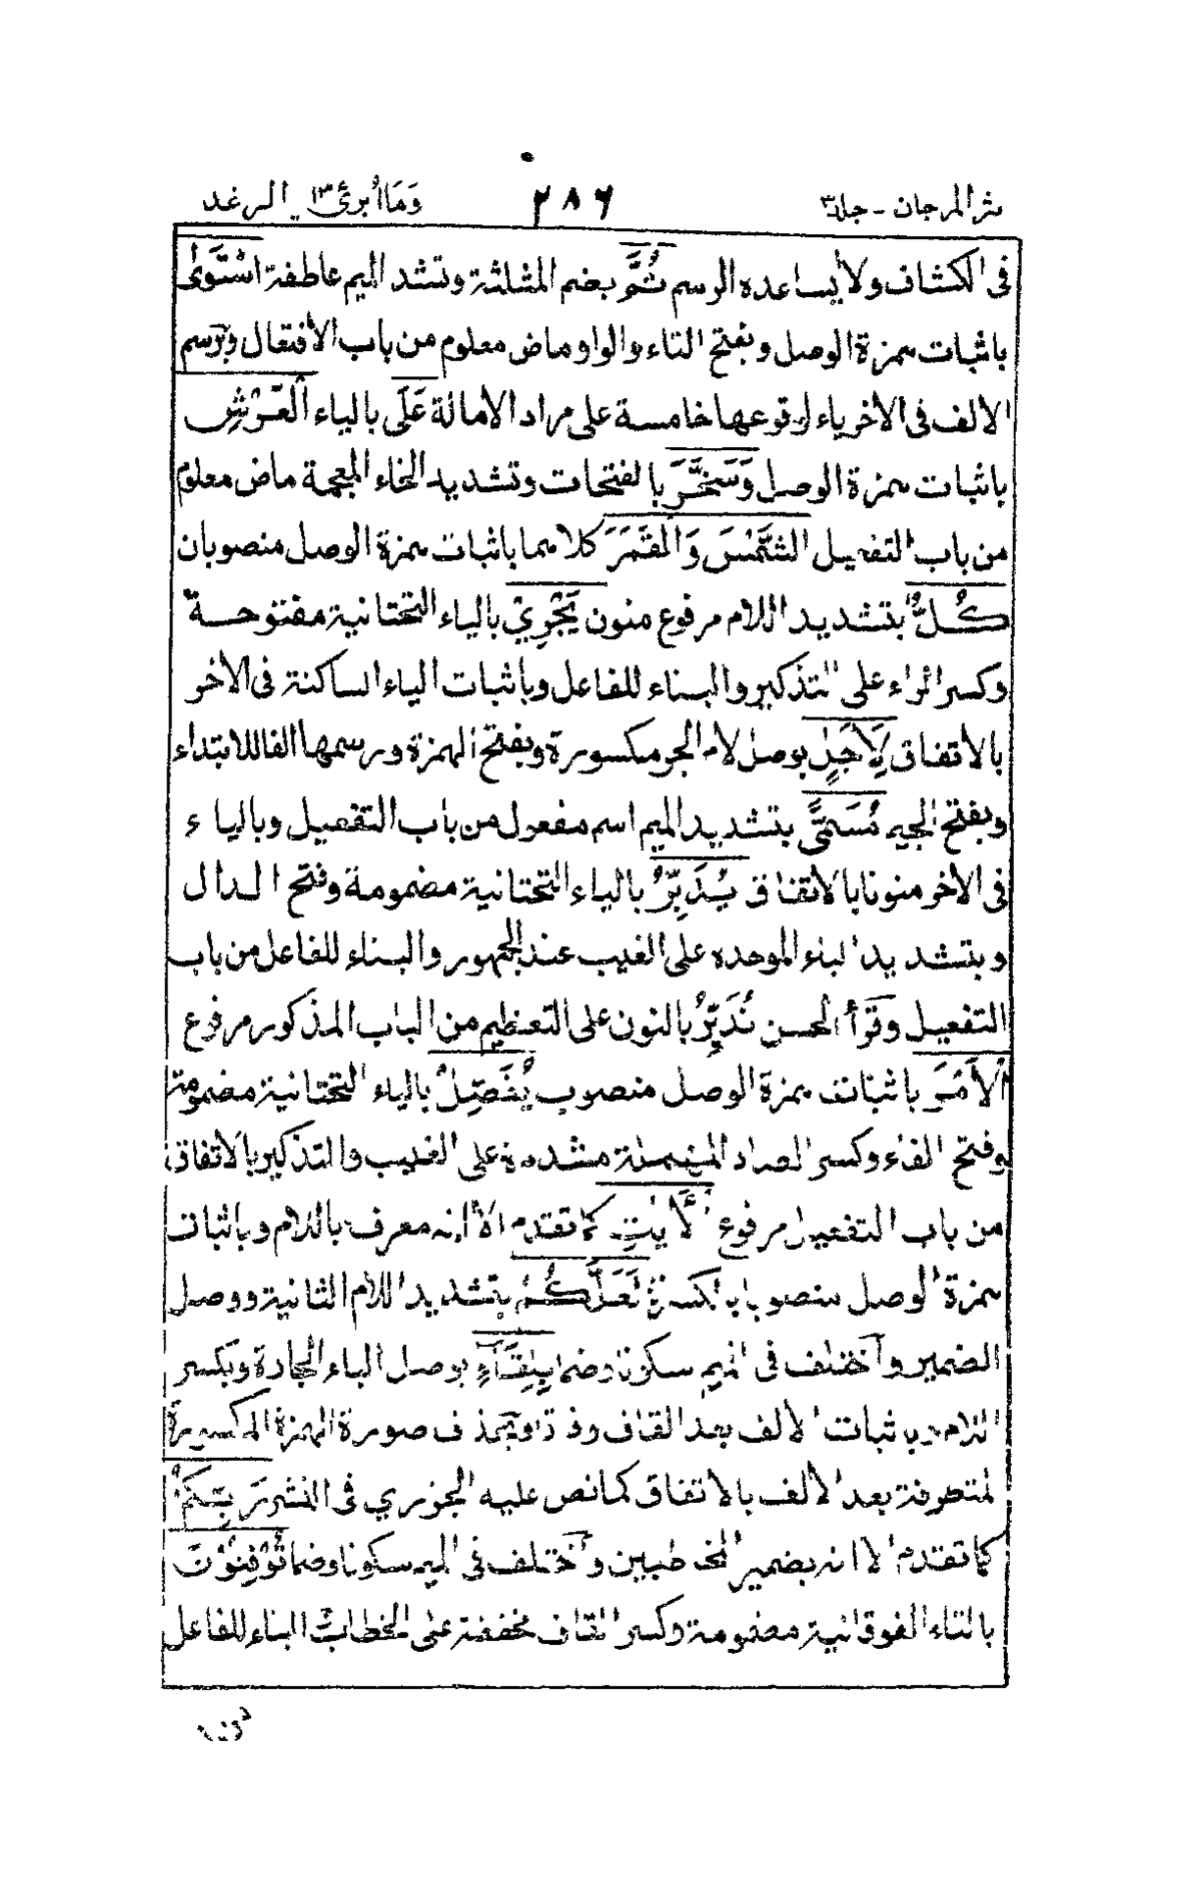 نثر المرجان - جلد ٣ ٢٨٦ وَمَا أُبَرِّئُ ١٣ الرعد
فى الكشاف ولا يساعده الرسم ثُمَّ بضم المثلثة وتشد الميم عاطفة اسْتَوَىٰ
باثبات همزة الوصل وبفتح التاء والواو ماض معلوم من باب الأفتعال وترسم
الالف فى الأخر ياء لوقوعها خامسة على مراد الأمالة عَلَى بالياء الْعَرْشِ
باثبات همزة الوصل وَسَخَّرَ بالفتحات وتشديد الخاء المعجمة ماض معلوم
من باب التفعيل الشَّمْسَ وَالْقَمَرَ كلاهما باثبات همزة الوصل منصوبان
كُلٌّ بتشديد اللام مرفوع منون يَجْرِيْ بالياء التحتانية مفتوحة
وكسر الراء على التذكير والبناء للفاعل وباثبات الياء الساكنة فى الأخر
بالأتفاق لِأَجَلٍ بوصل لام الجر مكسورة وبفتح الهمزة ورسمها الفا للابتداء
وبفتح الجيم مُسَمًّى بتشديد الميم اسم مفعول من باب التفعيل وبالياء
فى الأخر منونا بالأتفاق يُدَبِّرُ بالياء التحتانية مضمومة وفتح الدال
وبتشديد الباء الموحده على الغيب عند الجمهور والبناء للفاعل من باب
التفعيل وقرأ الحسن نُدَبِّرُ بالنون على التعظيم من الباب المذكور مرفوع
الْأَمْرَ باثبات همزة الوصل منصوب يُفَصِّلُ بالياء التحتانية مضمومة
وفتح الفاء وكسر الصاد المهملة مشددة على الغيب والتذكير بالأتفاق
من باب التفعيل مرفوع الْأٰيٰتِ كما تقدم الا انه معرف باللام وباثبات
همزة الوصل منصوبا بالكسرة لَعَلَّكُمْ بتشديد اللام الثانية ووصل
الضمير واختلف فى الميم سكونا وضما بِلِقَاءِ بوصل الباء الجارة وبكسر
اللام وباثبات الالف بعد القاف وفاقا وبحذف صورة الهمزة المكسورة
لمتطرفة بعد الالف بالاتفاق كما نص عليه الجزري فى النشر رَبِّكُمْ
كما تقدم الا انه بضمير المخاطبين واختلف فى الميم سكونا وضما تُوْقِنُوْنَ
بالتاء الفوقانية مضمومة وكسر القاف مخففة على الخطاب البناء للفاعل